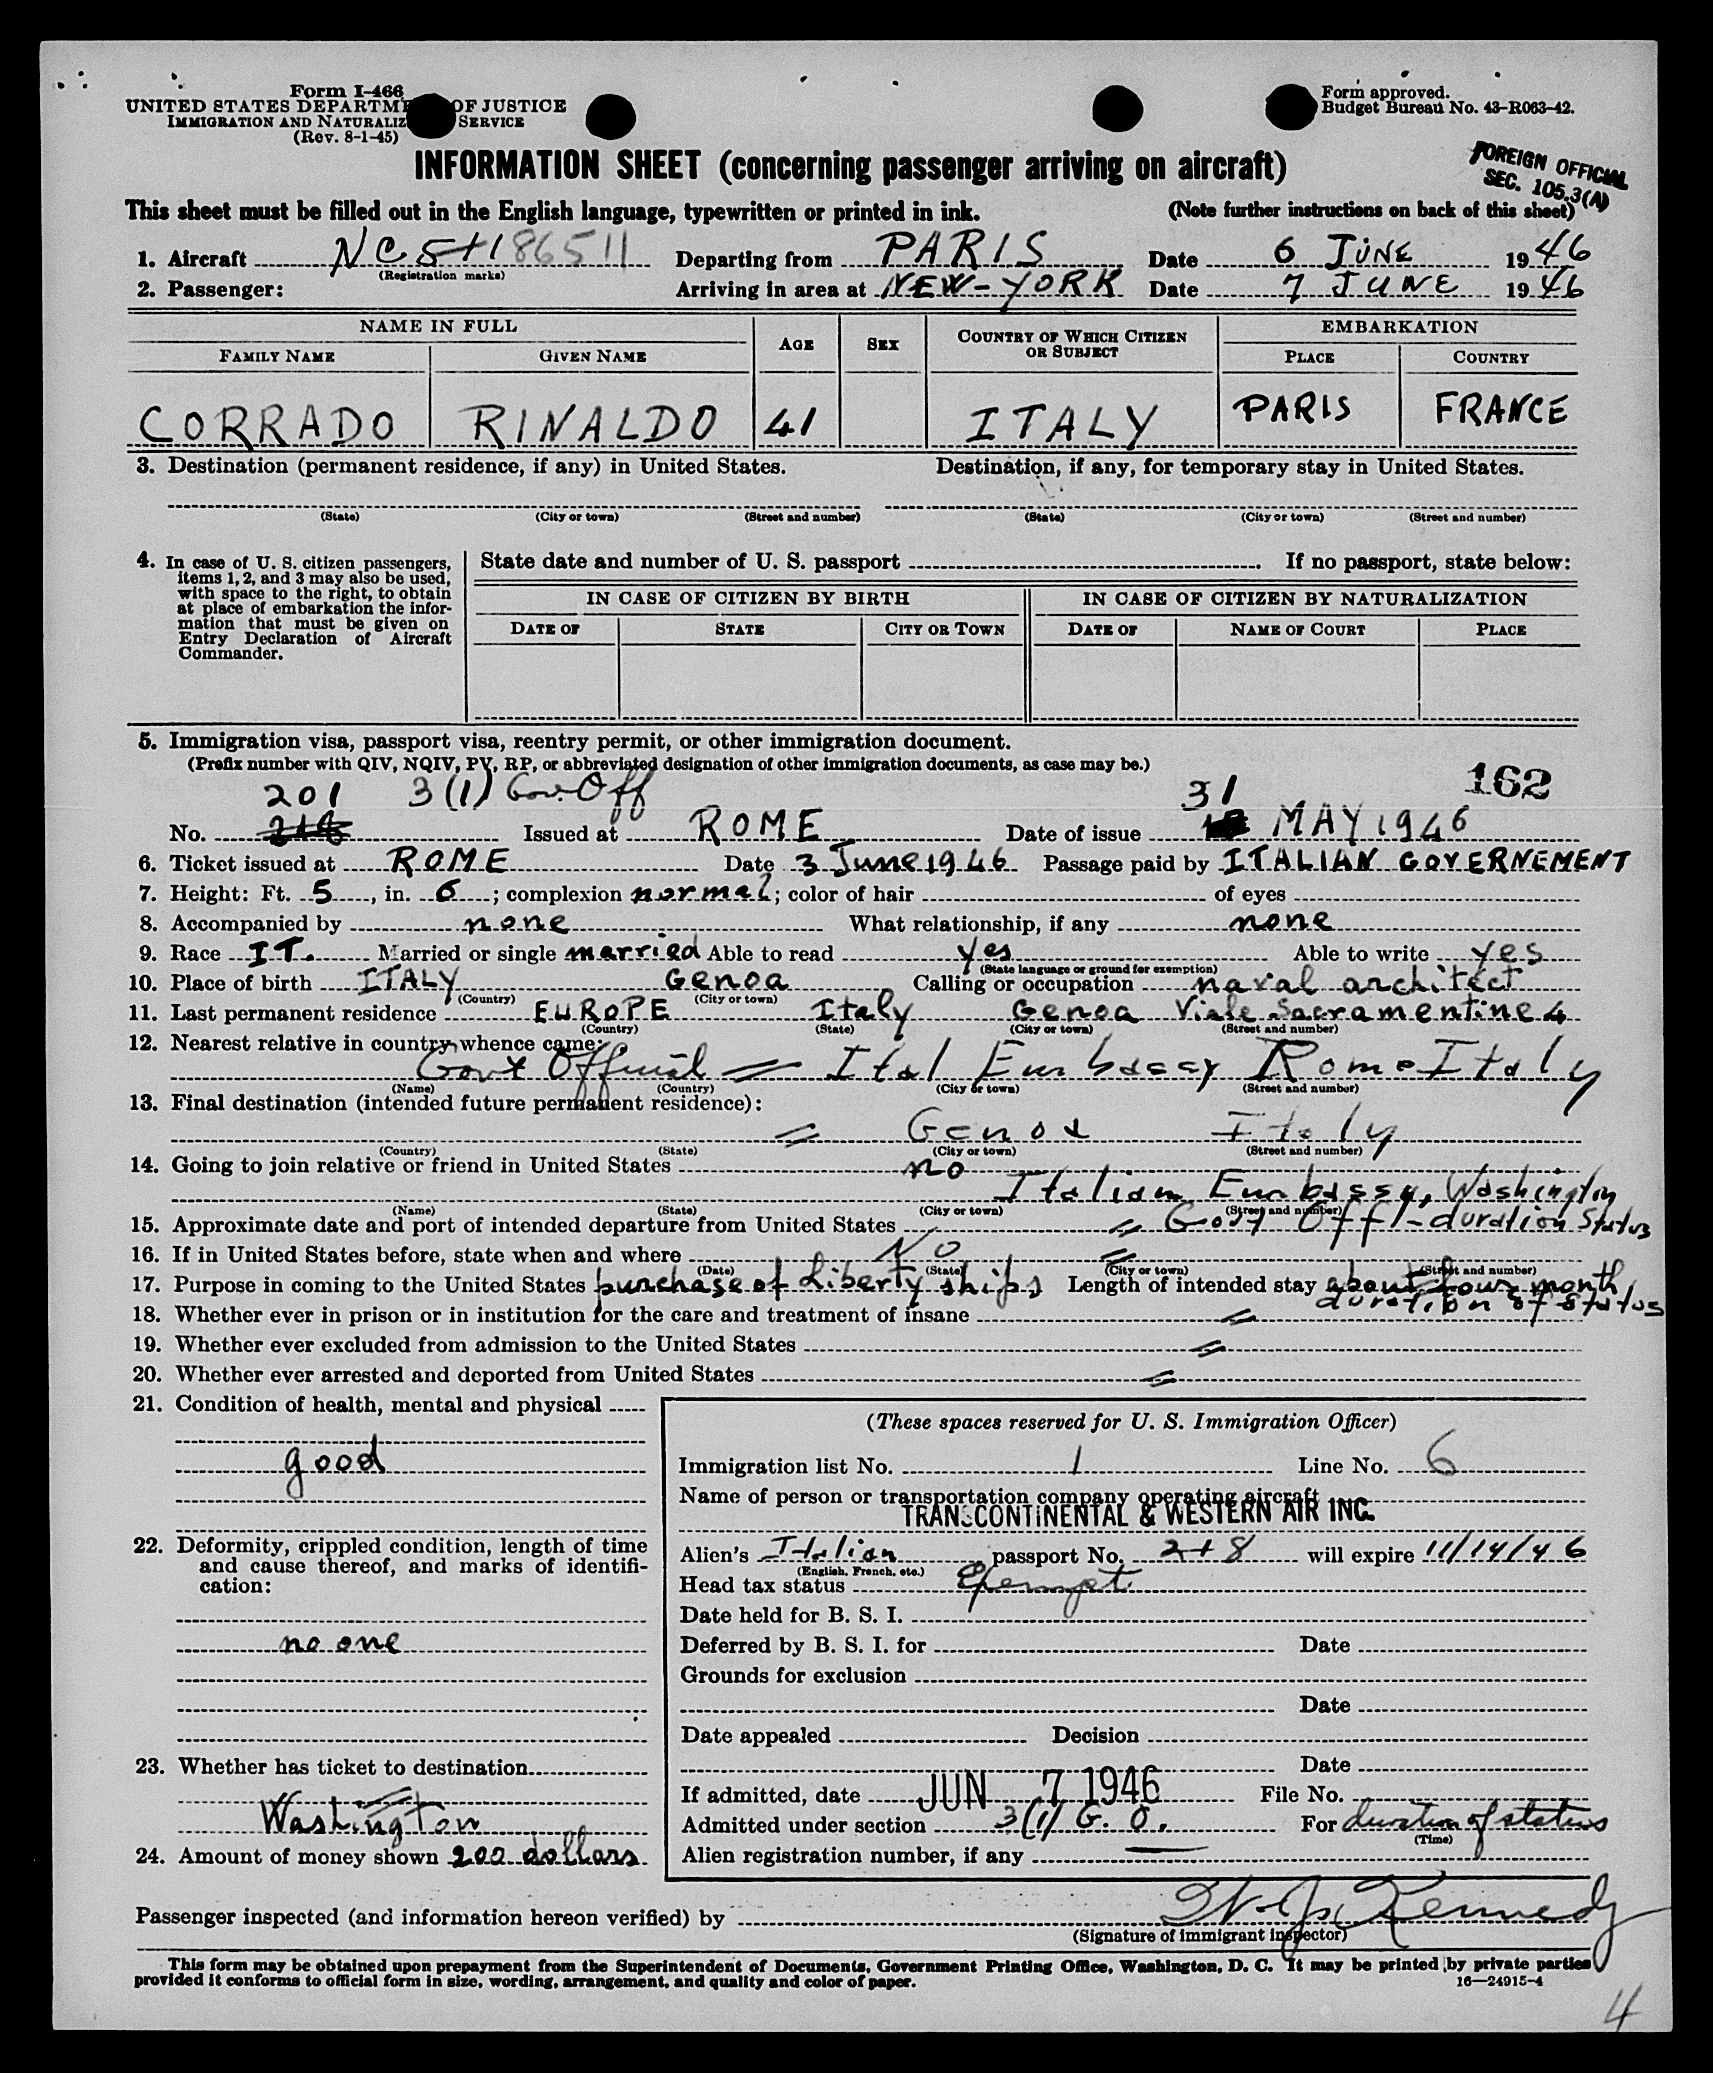 Form I-466
UNITED STATES DEPARTM OF JUSTICE
IMMIGRATION AND NATURALIZ SERVICE
(Rev. 8-1-45)
Form approved.
Budget Bureau No. 43-R063-42.
INFORMATION SHEET (concerning passenger arriving on aircraft)
FOREIGN OFFICIAL
SEC. 105.3(A)
This sheet must be filled out in the English language, typewritten or printed in ink. (Note further instructions on back of this sheet)
1. Aircraft NC 86511 Departing from PARIS Date 6 JUNE 1946
(Registration marks)
2. Passenger: Arriving in area at NEW-YORK Date 7 JUNE 1946
NAME IN FULL
FAMILY NAME GIVEN NAME AGE SEX COUNTRY OF WHICH CITIZEN OR SUBJECT EMBARKATION PLACE COUNTRY
CORRADO RINALDO 41 ITALY PARIS FRANCE
3. Destination (permanent residence, if any) in United States. Destination, if any, for temporary stay in United States.
(State) (City or town) (Street and number) (State) (City or town) (Street and number)
4. In case of U. S. citizen passengers,
items 1, 2, and 3 may also be used,
with space to the right, to obtain
at place of embarkation the infor-
mation that must be given on
Entry Declaration of Aircraft
Commander.
State date and number of U. S. passport . If no passport, state below:
IN CASE OF CITIZEN BY BIRTH IN CASE OF CITIZEN BY NATURALIZATION
DATE OF STATE CITY OR TOWN DATE OF NAME OF COURT PLACE
5. Immigration visa, passport visa, reentry permit, or other immigration document.
(Prefix number with QIV, NQIV, PV, RP, or abbreviated designation of other immigration documents, as case may be.)
201 3(1) Gov. Off 31 162
No. Issued at ROME Date of issue MAY 1946
6. Ticket issued at ROME Date 3 June 1946 Passage paid by ITALIAN GOVERNEMENT
7. Height: Ft. 5, in. 6; complexion normal; color of hair of eyes
8. Accompanied by none What relationship, if any none
9. Race IT. Married or single married Able to read yes Able to write yes
(State language or ground for exemption)
10. Place of birth ITALY Genoa Calling or occupation naval architect
(Country) (City or town)
11. Last permanent residence EUROPE Italy Genoa Viale Sacramentine 4
(Country) (State) (City or town) (Street and number)
12. Nearest relative in country whence came:
Govt Official = Ital Embassy Rome Italy
(Name) (Country) (City or town) (Street and number)
13. Final destination (intended future permanent residence):
= Genoa Italy
(Country) (State) (City or town) (Street and number)
14. Going to join relative or friend in United States no
Italian Embassy, Washington
(Name) (State) (City or town) (Street and number)
15. Approximate date and port of intended departure from United States = Govt Offl-duration status
16. If in United States before, state when and where NO =
(Date) (State) (City or town) (Street and number)
17. Purpose in coming to the United States purchase of Liberty ships Length of intended stay about four month
duration of status
18. Whether ever in prison or in institution for the care and treatment of insane =
19. Whether ever excluded from admission to the United States =
20. Whether ever arrested and deported from United States =
21. Condition of health, mental and physical
good
22. Deformity, crippled condition, length of time
and cause thereof, and marks of identifi-
cation:
no one
23. Whether has ticket to destination
Washington
24. Amount of money shown 200 dollars
(These spaces reserved for U. S. Immigration Officer)
Immigration list No. 1 Line No. 6
Name of person or transportation company operating aircraft
TRANSCONTINENTAL & WESTERN AIR INC.
Alien's Italian passport No. 248 will expire 11/14/46
(English, French, etc.)
Head tax status Exempt
Date held for B. S. I.
Deferred by B. S. I. for Date
Grounds for exclusion
Date
Date appealed Decision
Date
If admitted, date JUN 7 1946 File No.
Admitted under section 3(1) G. O. For duration of status
(Time)
Alien registration number, if any
Passenger inspected (and information hereon verified) by Kennedy
(Signature of immigrant inspector)
This form may be obtained upon prepayment from the Superintendent of Documents, Government Printing Office, Washington, D. C. It may be printed by private parties
provided it conforms to official form in size, wording, arrangement, and quality and color of paper. 16—24915-4
4